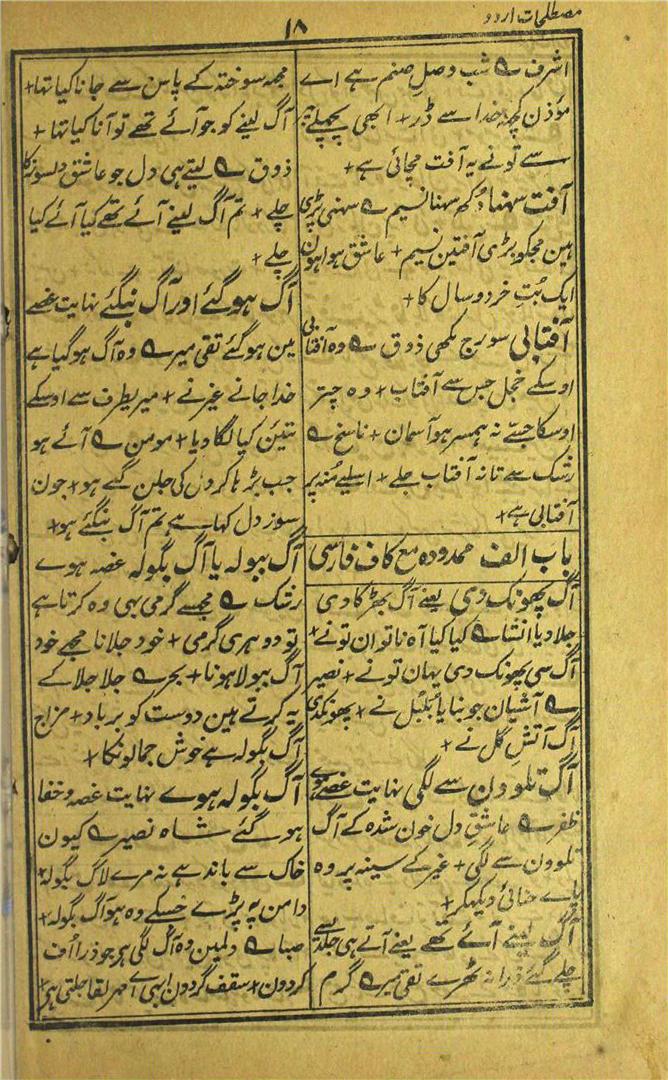 مصطلحات اردو
۱۸
اشرف ؎ شب وصل صنم ہے اے
مؤذن کچھ خدا سے ڈر + ابھی پچھلے پہر
سے تونے یہ آفت مچائی ہے +
آفت سہنا دکھ سہنا نسیم ؎ سہنی پڑی
ہین مجکو بڑی آفتین نسیم + عاشق ہوا ہون
ایک بُتِ خرد و سال کا +
آفتابی سورج مکھی ذوق ؎ وہ آفتابی
اوسکے خجل جس سے آفتاب + وہ چتر
اوسکا جسے نہ ہمسر ہو آسمان + ناسخ ؎
رشک سے تا نہ آفتاب جلے + اسلیے منہ پر
آفتابی ہے +
باب الف ممدودہ مع کاف فارسی
آگ پھونک دی یعنے آگ بھڑکا دی
جلا دیا انشا ؎ کیا کیا آہ ناتوان تونے +
آگ سی پھونک دی یہان تونے + نصیر
؎ آشیان جو بنایا بلبل نے + پھونکدی
آگ آتشِ گل نے +
آگ تلوون سے لگی نہایت غصہ ہوے
ظفر ؎ عاشق دل خون شدہ کے آگ
تلوون سے لگی + غیر کے سینہ پر وہ
پاے حنائی دیکھکر +
آگ لینے آئے تھے یعنے آتے ہی جلد
چلے گئے ذرا نہ ٹھرے تقی میر ؎ گرم
مجھ سوختہ کے پاس سے جانا کیا تھا +
آگ لینے کو جو آئے تھے تو آنا کیا تھا +
ذوق ؎ لیتے ہی دل جو عاشق دلسوز کا
چلے + تم آگ لینے آئے تھے کیا آئے کیا
چلے +
آگ ہوگئے اور آگ بنگئے نہایت غصے
مین ہوگئے تقی میر ؎ وہ آگ ہو گیا ہے
خدا جانے غیر نے + میریطرف سے اوسکے
تئین کیا لگا دیا + مومن ؎ آئے ہو
جب بڑھا کر دل کی جلن گیے ہو + جون
سوز دل کہا ہے تم آگ بنگئے ہو +
آگ ببولہ یا آگ بگولہ غصہ ہوے
رشک ؎ مجھسے گرمی بہی وہ کرتا ہے
تو دوہری گرمی + خود جلانا مجھے خود
آگ ببولا ہونا + بحر ؎ جلا جلا کے
یہ کرتے ہین دوست کو برباد + مزاج
آگ بگولہ ہے خوش جمالونکا +
آگ بگولہ ہوے نہایت غصہ و خفا
ہوگئے شاہ نصیر ؎ کیون
خاک سے باندہے نہ مرے لاگ بگولہ +
دامن پہ پڑے جسکے وہ ہو آگ بگولہ +
صبا ؎ دلمین وہ آگ لگی ہی جو ذرا اُف
کردون + سقف گردون ابہی اے لقا جلتی ہی +